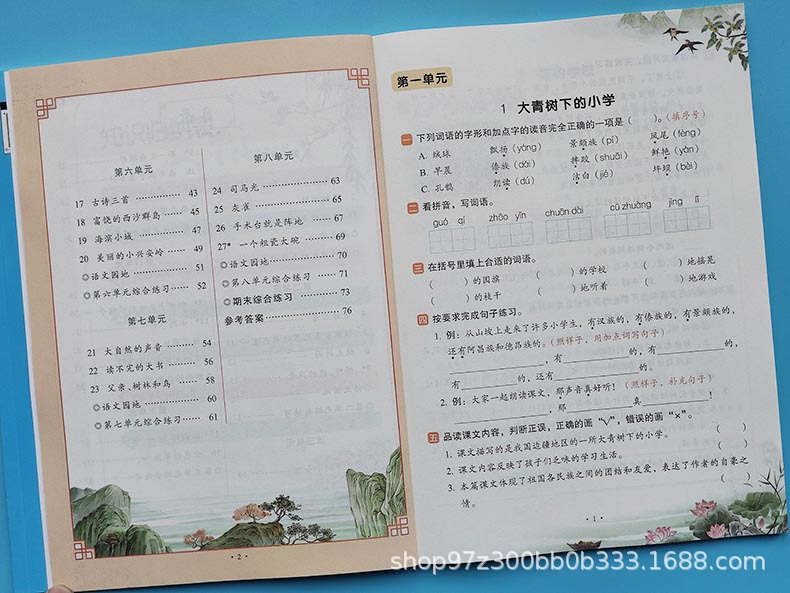 第六单元
17 古诗三首 ………… 43
18 富饶的西沙群岛 …… 45
19 海滨小城 ………… 47
20 美丽的小兴安岭 …… 49
◎语文园地 ………… 51
◎第六单元综合练习 …… 52
第七单元
21 大自然的声音 ……… 54
22 读不完的大书 ……… 56
23 父亲、树林和鸟 …… 58
◎语文园地 ………… 60
◎第七单元综合练习 …… 61
第八单元
24 司马光 ………… 63
25 灰雀 ………… 65
26 手术台就是阵地 …… 67
27* 一个粗瓷大碗 …… 69
◎语文园地 ………… 70
◎第八单元综合练习 …… 71
◎期末综合练习 ……… 73
参考答案 ………… 76
· 2 ·
第一单元
1 大青树下的小学
一 下列词语的字形和加点字的读音完全正确的一项是( )。(填序号)
A. 绒球 飘扬(yáng) 景颇族(pí) 凤尾(fèng)
B. 早晨 傣族(dǎi) 摔跤(shuāi) 鲜艳(yàn)
C. 孔鹊 朗读(dú) 洁白(jié) 坪坝(bèi)
二 看拼音,写词语。
guó qí zhāo yīn zhuān dài cū zhuàng jìng lǐ
三 在括号里填上合适的词语。
( )的国旗 ( )的学校 ( )地摇晃
( )的枝干 ( )地听着 ( )地游戏
四 按要求完成句子练习。
1. 例:从山坡上走来了许多小学生,有汉族的,有傣族的,有景颇族的,
还有阿昌族和德昂族的。(照样子,用加点词写句子)
____,有____的,有____的,
有____的,还有____的。
2. 例:大家一起朗读课文,那声音真好听!(照样子,补充句子)
____,那____真____!
五 品读课文内容,判断正误,正确的画“√”,错误的画“×”。
1. 课文描写的是我国边疆地区的一所大青树下的小学。 ( )
2. 课文内容反映了孩子们乏味的学习生活。 ( )
3. 本篇课文体现了祖国各民族之间的团结和友爱,表达了作者的自豪之
情。 ( )
· 1 ·
shop97z300bb0b333.1688.com